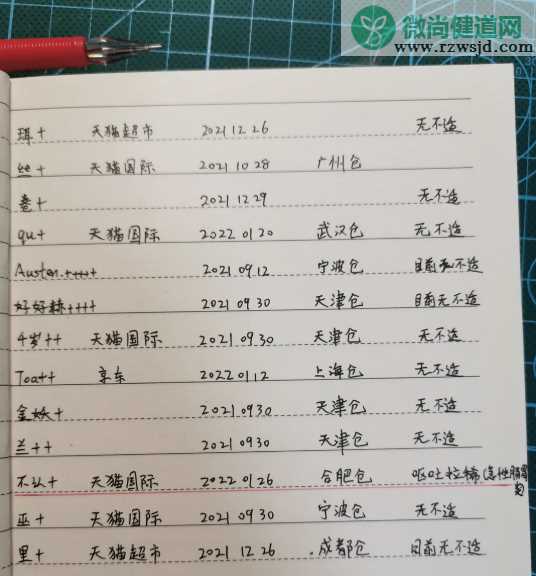 微尚健道网
www.rzwsjd.com
珥+ 天猫超市 2021 12 26 无不适
丝+ 天猫国际 2021 10 28 广州仓
意+ 2021 12 29 无不适
qu+ 天猫国际 2022 01 20 武汉仓 无不适
Austen.++++ 2021 09 12 宁波仓 目前无不适
好好 ++++ 2021 09 30 天津仓 目前无不适
4岁++ 天猫国际 2021 09.30 天津仓 无不适
Toa++ 京东 2022 01 12 上海仓 无不适
金 + 2021 09 30 天津仓 无不适
兰++ 2021 09 30 天津仓 无不适
不以+ 天猫国际 2022 01 26 合肥仓 呕吐拉稀(急性肠胃炎)
巫+ 天猫国际 2021 09 30 宁波仓 无不适
里+ 天猫超市 2021 12 26 成都仓 目前无不适